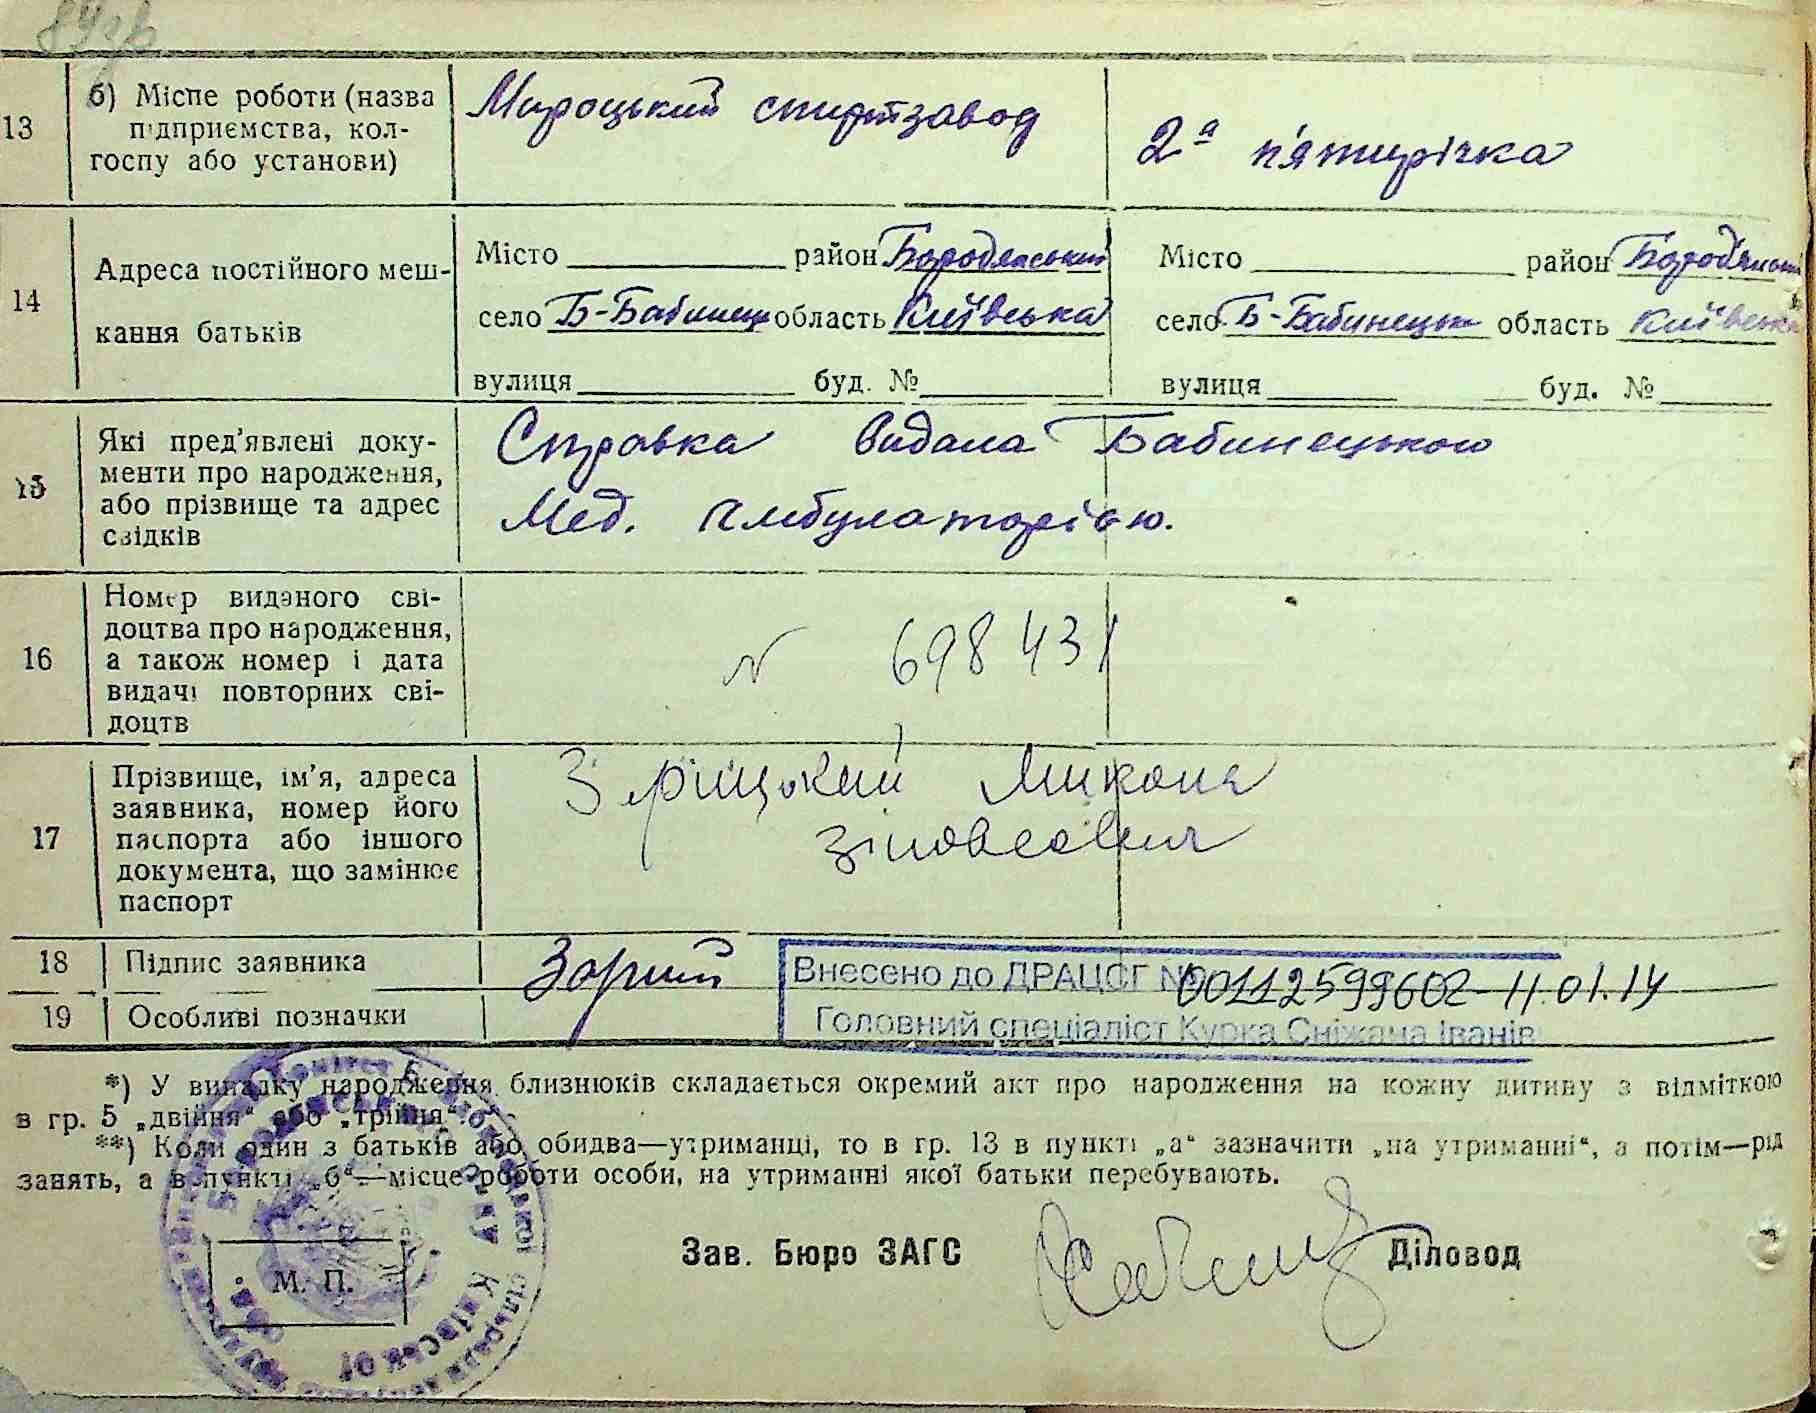 13
б) Місце роботи (назва
підприємства, кол-
госпу або установи)
Мироцький спиртзавод
2а п'ятирічка
14
Адреса постійного меш-
кання батьків
Місто район Бородянський
село Б-Бабинецька область Київська
вулиця буд. №
Місто район Бородянський
село Б-Бабинецьк область Київська
вулиця буд. №
15
Які пред'явлені доку-
менти про народження,
або прізвище та адрес
свідків
Справка видана Бабинецькою
Мед. амбулаторією.
16
Номер виданого сві-
доцтва про народження,
а також номер і дата
видачі повторних сві-
доцтв
N 698431
17
Прізвище, ім'я, адреса
заявника, номер його
паспорта або іншого
документа, що замінює
паспорт
Микола
18
Підпис заявника
19
Особливі позначки
Внесено до ДРАЦСГ № 00112599602 11.01.14
Головний спеціаліст Курка Сніжана Іванів
*) У випадку народження близнюків складається окремий акт про народження на кожну дитину з відміткою
в гр. 5 „двійня“ або „трійня“.
**) Коли один з батьків або обидва—утриманці, то в гр. 13 в пункті „а“ зазначити „на утриманні“, а потім—рід
занять, а в пункті „б“—місце роботи особи, на утриманні якої батьки перебувають.
М. П.
Зав. Бюро ЗАГС
Діловод